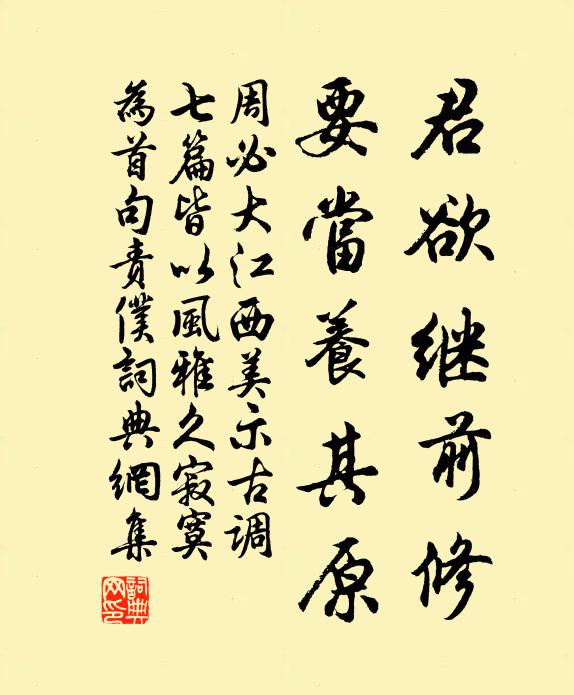 君欲继前修
要當養其原
周必大江西美示古调
七篇皆以風雅久寂寞
為首句责僕詞典網集
詞典網印